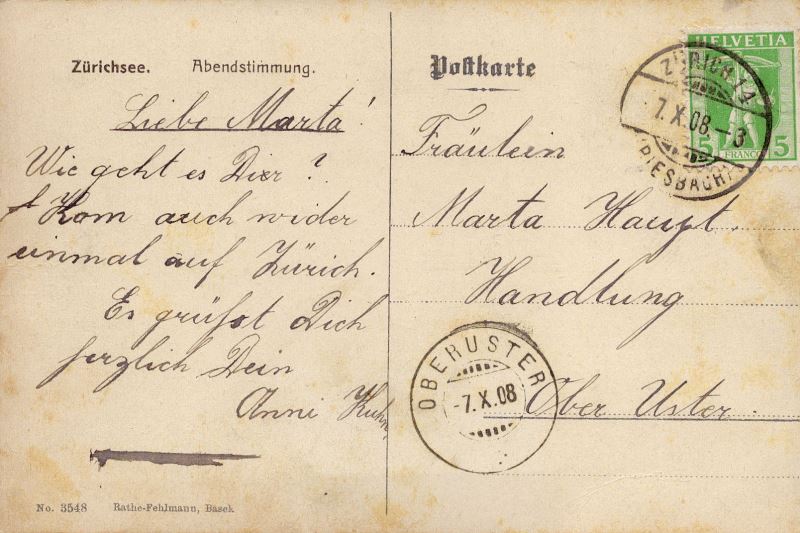 Zürichsee. Abendstimmung.
Liebe Marta!
Wie geht es Dier?
Kom auch wider
einmal auf Zürich.
Es grüsst Dich
herzlich Dein
Anni Kuhn
No. 3548 Rathe-Fehlmann, Basel
Postkarte
HELVETIA
5 FRANCO 5
ZÜRICH 14
7.X.08.-8
(RIESBACH)
Fräulein
Marta Haupt.
Handlung
Ober Uster.
OBERUSTER
-7.X.08